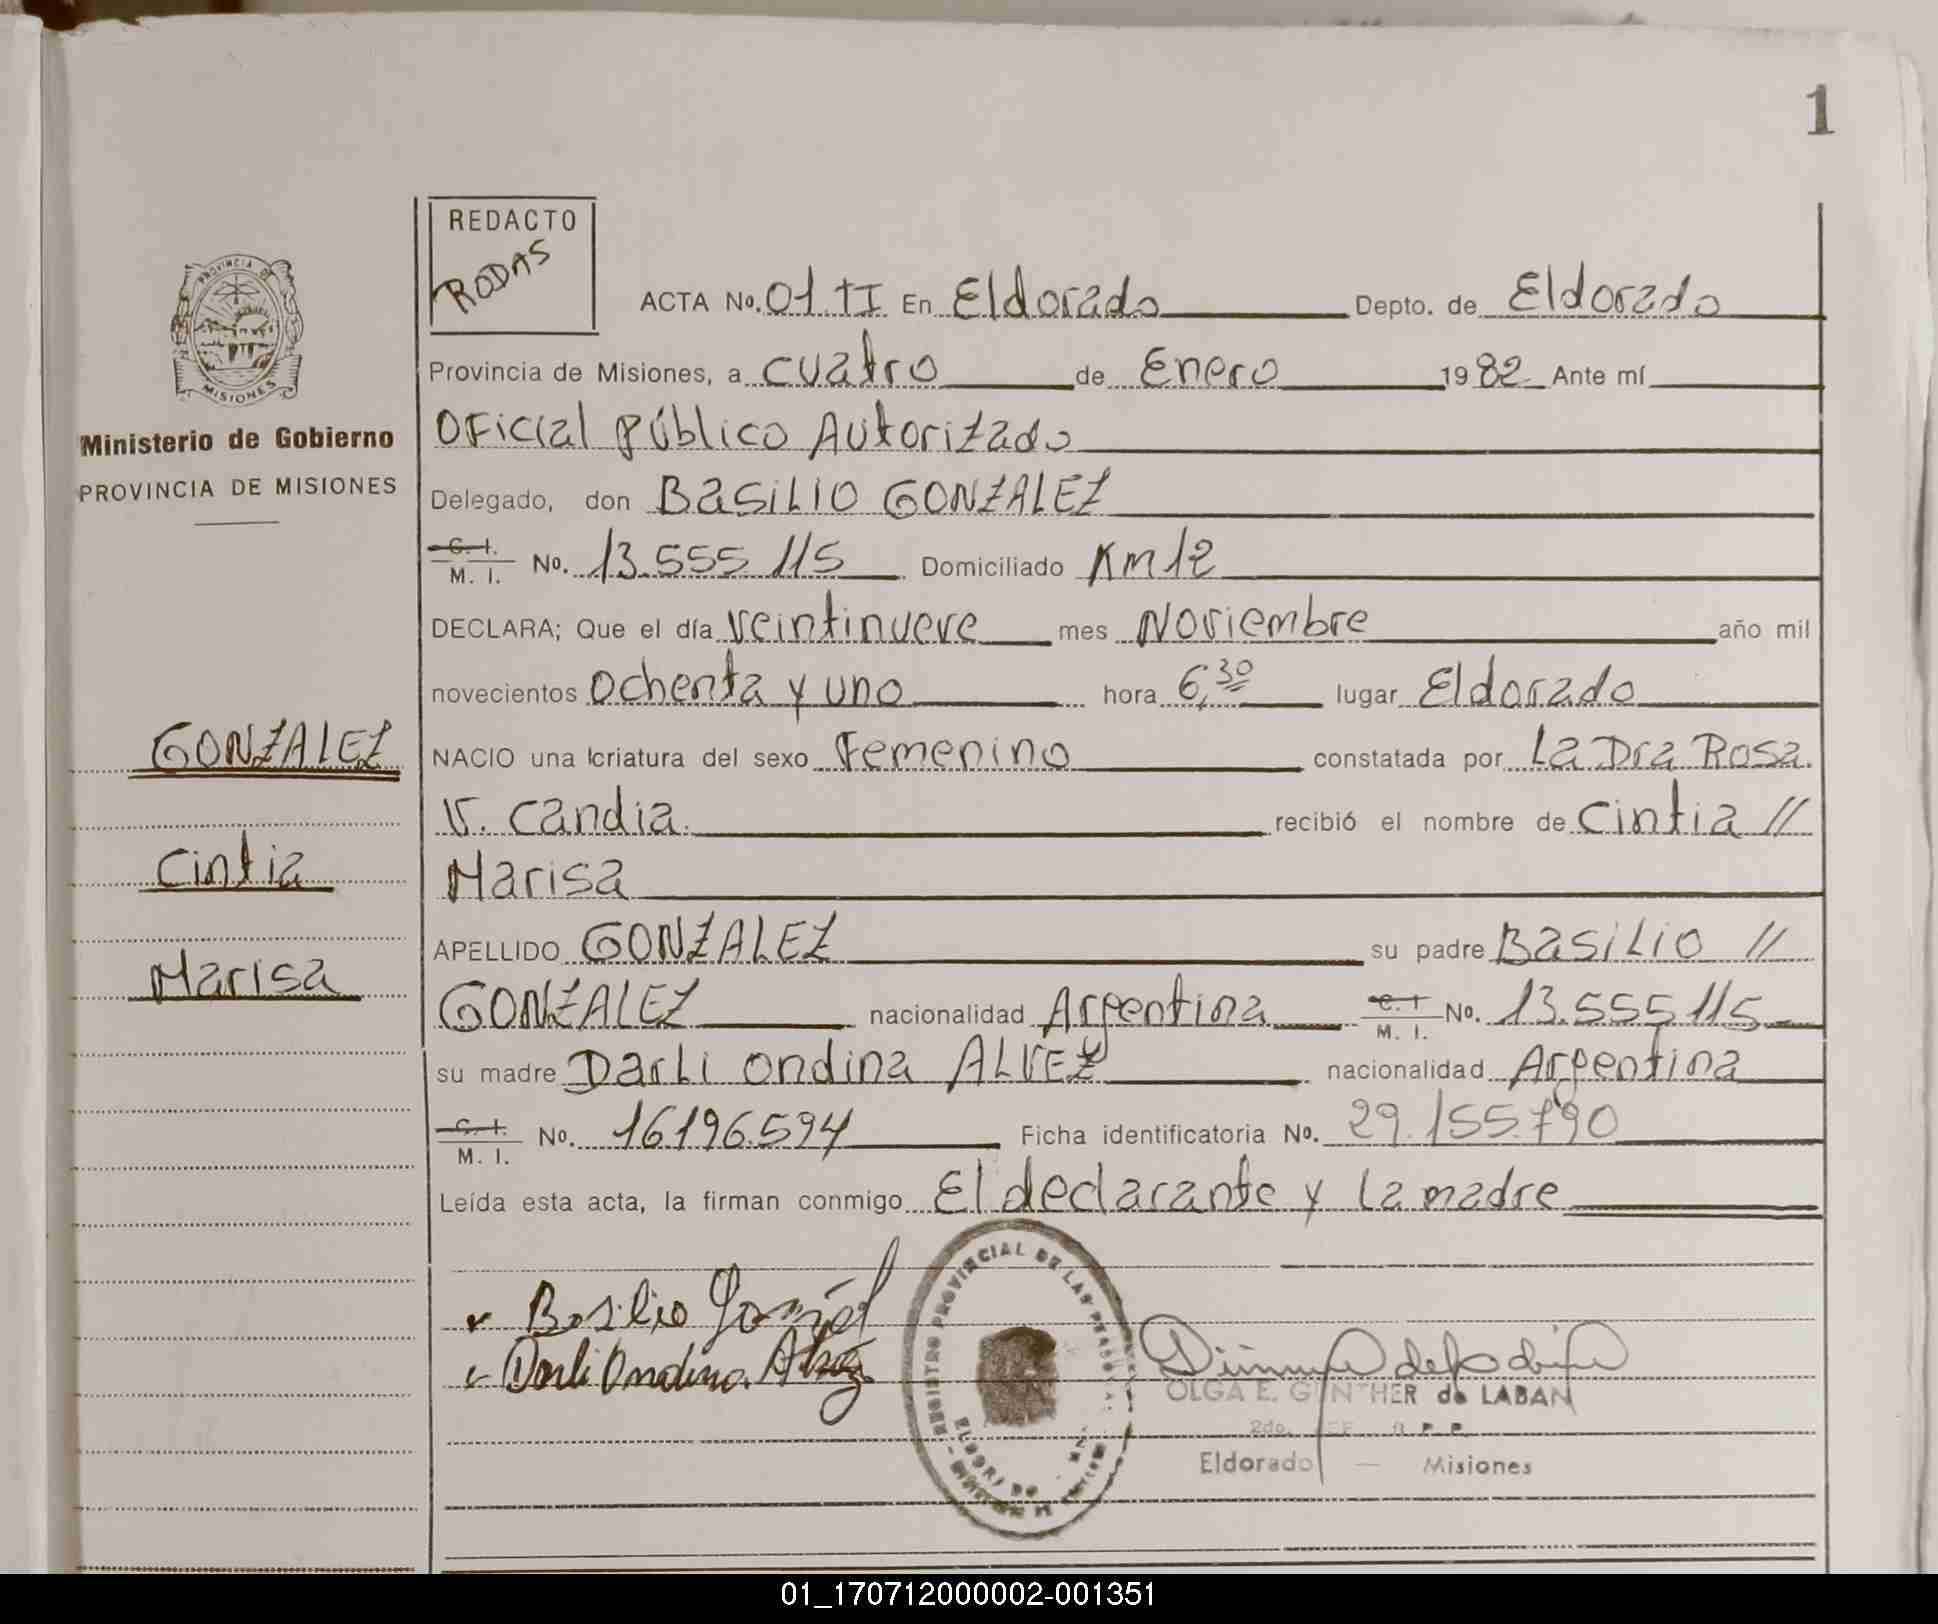 1
REDACTO
RODAS
PROVINCIA DE
MISIONES
Ministerio de Gobierno
PROVINCIA DE MISIONES
GONZALEZ
Cintia
Marisa
ACTA No. 01 TI En Eldorado Depto. de Eldorado
Provincia de Misiones, a cuatro de Enero 1982 Ante mí
Oficial Público Autorizado
Delegado, don Basilio GONZALEZ
C. I. M. I. No. 13.555 115 Domiciliado Km 12
DECLARA; Que el día veintinueve mes Noviembre año mil
novecientos ochenta y uno hora 6,30 lugar Eldorado
NACIO una criatura del sexo Femenino constatada por La Dra Rosa.
V. Candia. recibió el nombre de Cintia //
Marisa
APELLIDO GONZALEZ su padre Basilio //
GONZALEZ nacionalidad Argentina C. I M. I. No. 13.555 115
su madre Darli Ondina ALVEZ nacionalidad Argentina
C. I. M. I. No. 16196.594 Ficha identificatoria No. 29.155.790
Leída esta acta, la firman conmigo El declarante y la madre
Basilio Gonzalez
Darli Ondina Alvez
REGISTRO PROVINCIAL DE LAS PERSONAS
OLGA E. GUNTHER de LABAN
2do.
Eldorado — Misiones
01_170712000002-001351